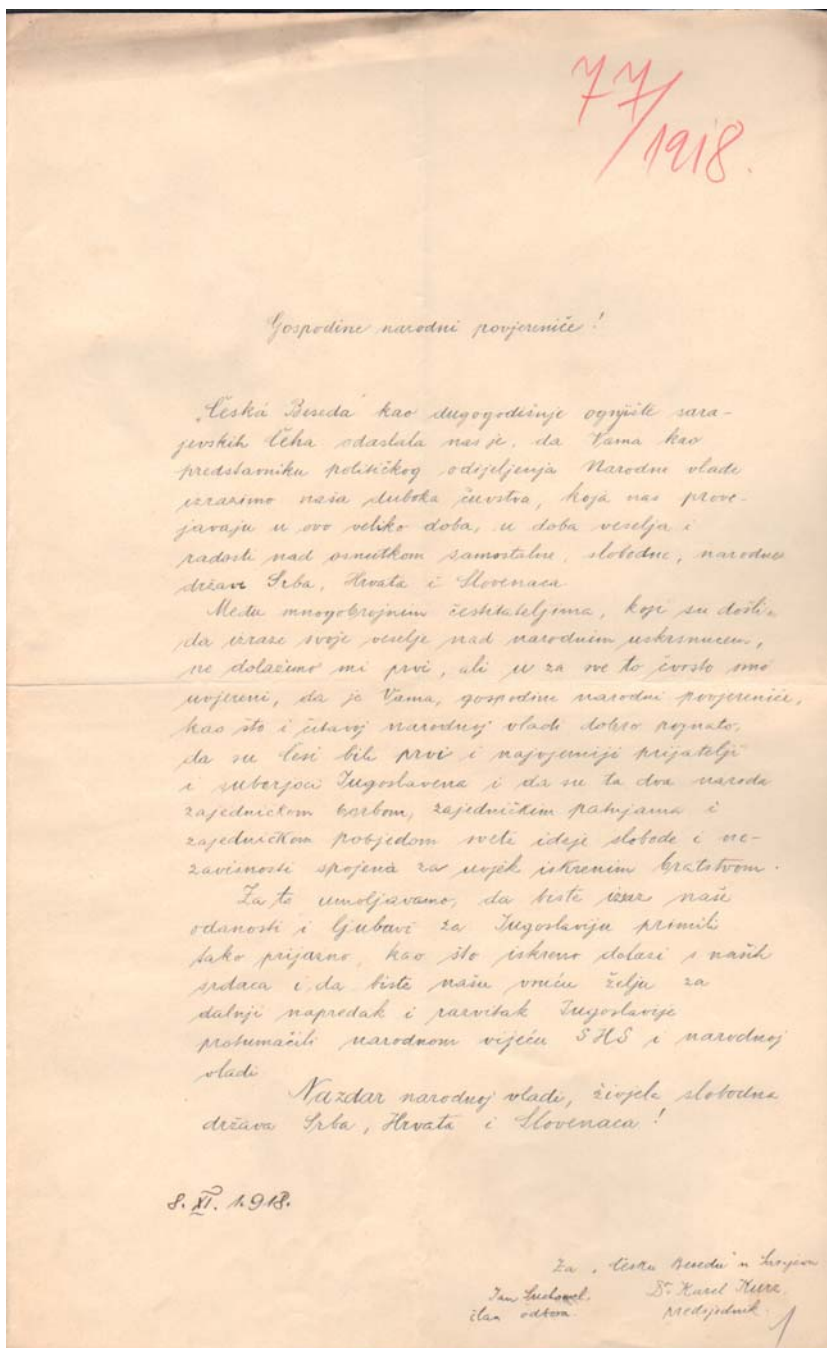 77/1918.
Gospodine narodni povjereniče!
„Česká Beseda" kao dugogodišnje ognjište sara-
jevskih Čeha odaslala nas je, da Vama kao
predstavniku političkog odijeljenja Narodne vlade
izrazimo naša duboka čuvstva, koja nas prove-
javaju u ovo veliko doba, u doba veselja i
radosti nad osnutkom samostalne, slobodne, narodne
države Srba, Hrvata i Slovenaca.
Među mnogobrojnim čestitateljima, koji su došli,
da izraze svoje veselje nad narodnim uskrsnućem,
ne dolazimo mi prvi, ali u za sve to čvrsto smo
uvjereni, da je Vama, gospodine narodni povjereniče,
kao što i čitavoj narodnoj vladi dobro poznato,
da su Česi bili prvi i najvjerniji prijatelji
i suborjoci Jugoslavena i da su ta dva naroda
zajedničkom borbom, zajedničkim patnjama i
zajedničkom pobjedom svete ideje slobode i ne-
zavisnosti spojena za uvjek iskrenim bratstvom.
Za to umoljavamo, da biste izraz naše
odanosti i ljubavi za Jugoslaviju primili
tako prijazno, kao što iskreno dolazi s naših
srdaca i da biste našu vruću želju za
dalnji napredak i razvitak Jugoslavije
protumačili narodnom vijeću SHS i narodnoj
vladi
Nazdar narodnoj vladi, živjela slobodna
država Srba, Hrvata i Slovenaca!
8. XI. 1918.
Za „Česku Besedu" u Sarajevu
Jan Dr. Karel Kurz
član odbora predsjednik.
1